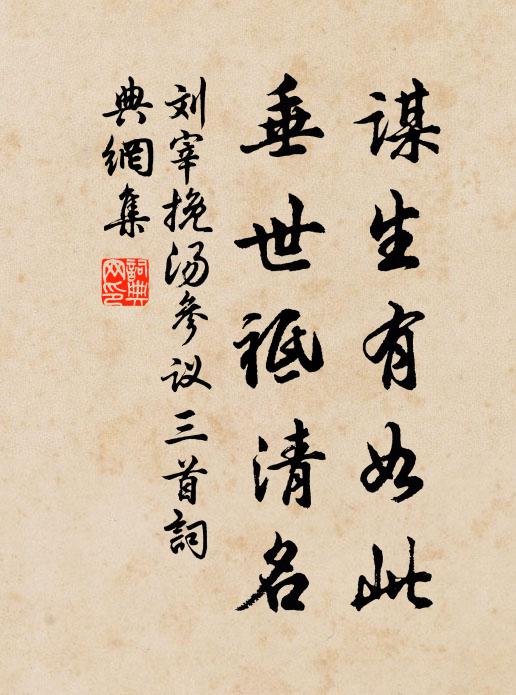 谋生有如此
垂世祗清名
刘宰挽汤参议三首詞
典網集
詞典
网印